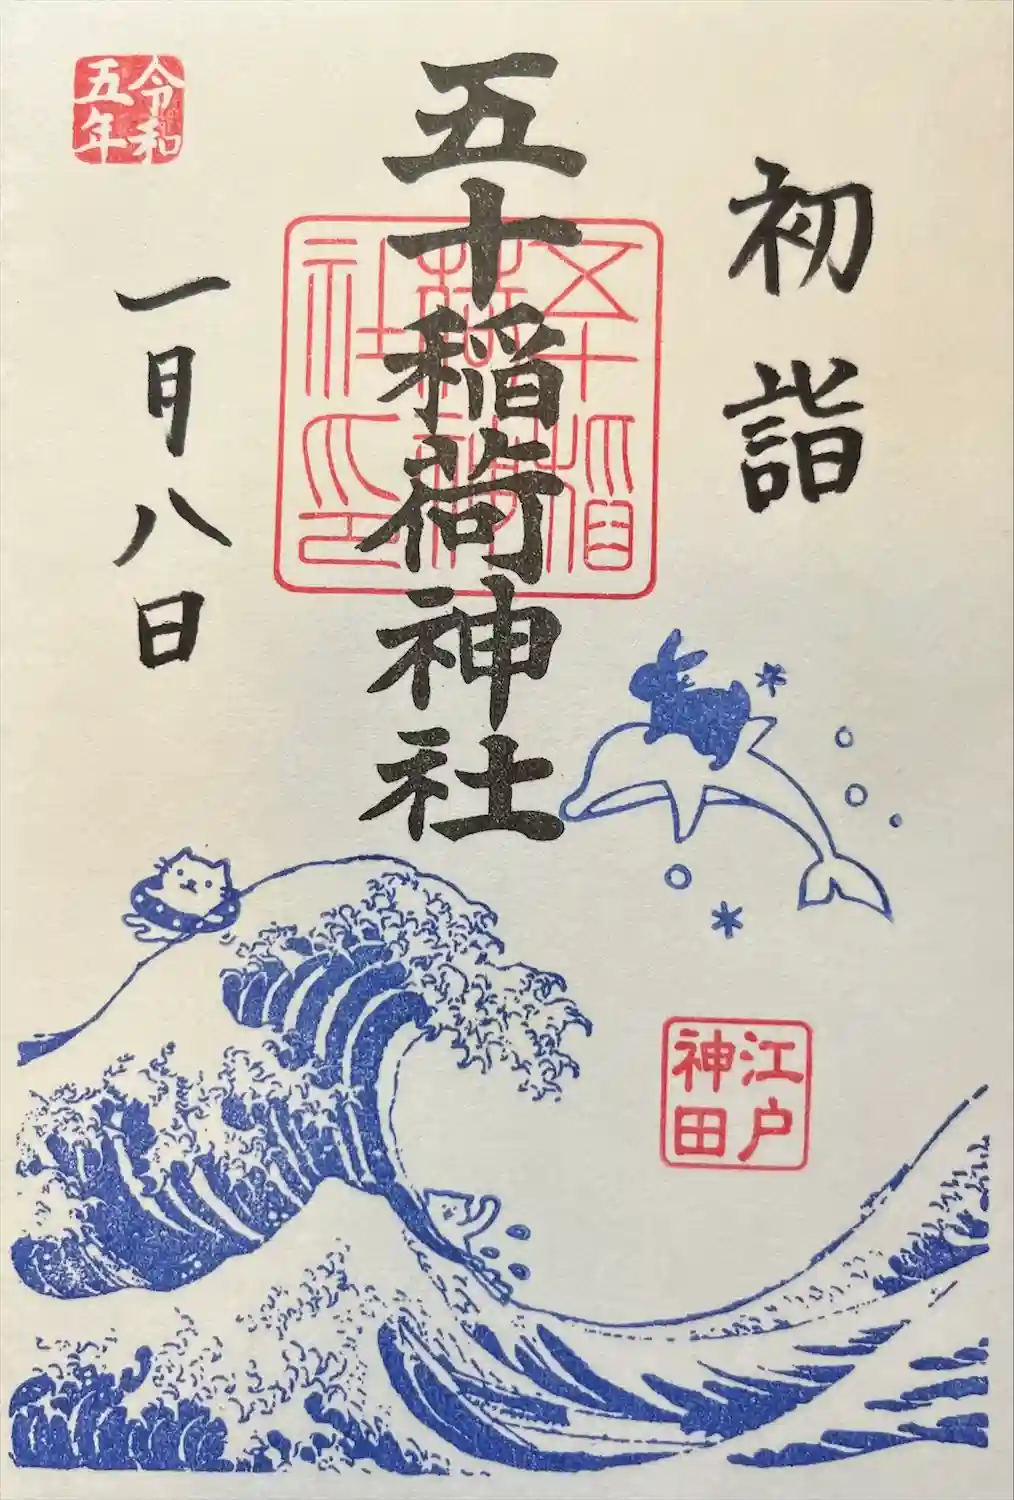 初詣
五十稲荷神社
五十稲荷神社印
令和五年
一月八日
江戸神田